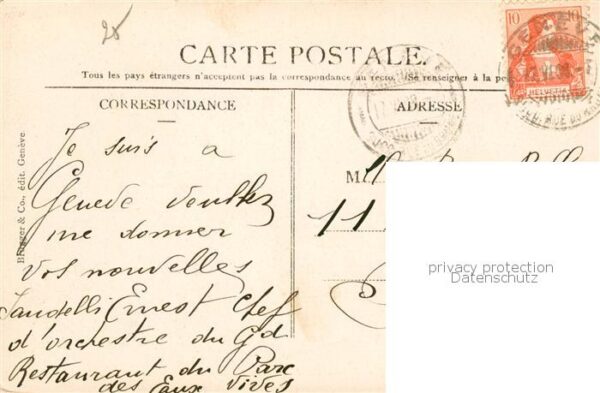 25
10 10
HELVETIA
CARTE POSTALE.
Tous les pays étrangers n'acceptent pas la correspondance au recto. (Se renseigner à la
CORRESPONDANCE
ADRESSE
Brugger & Co., édit. Genève
Je suis a
Genève
me donner
vos nouvelles
Ernest chef
d'orchestre du Gd
Restaurant du Parc
des Eaux Vives
11
privacy protection
Datenschutz